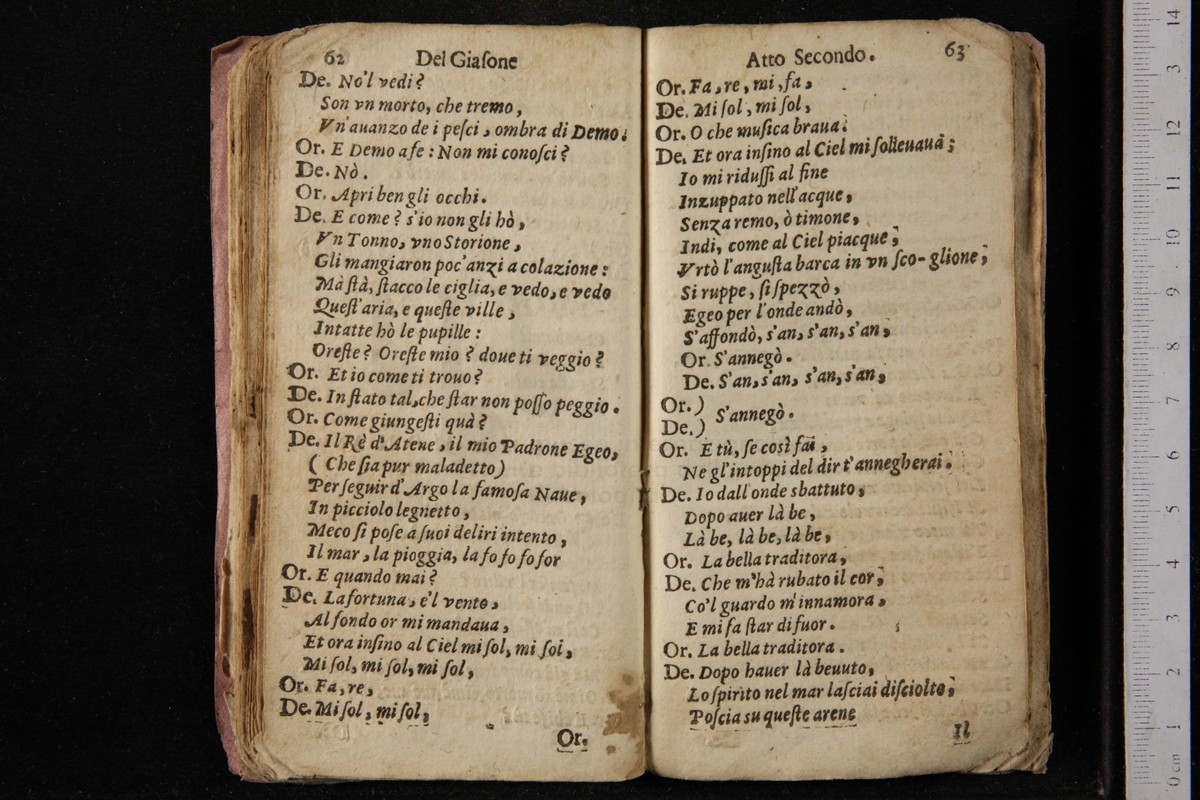 62 Del Giaſone
De. No'l vedi?
Son vn morto, che tremo,
Vn'auanzo de i peſci, ombra di Demo.
Or. E Demo aſe: Non mi conoſci?
De. Nò.
Or. Apri ben gli occhi.
De. E come? s'io non gli hò,
Vn Tonno, vno Storione,
Gli mangiaron poc'anzi a colazione:
Mà ſtà, ſtacco le ciglia, e vedo, e vedo
Queſt'aria, e queſte ville,
Intatte hò le pupille:
Oreſte? Oreſte mio? doue ti veggio?
Or. Et io come ti trouo?
De. In ſtato tal, che ſtar non poſſo peggio.
Or. Come giungeſti quà?
De. Il Rè d'Atene, il mio Padrone Egeo,
( Che ſia pur maladetto)
Per ſeguir d'Argo la famoſa Naue,
In picciolo legnetto,
Meco ſi poſe a ſuoi deliri intento,
Il mar, la pioggia, la fo fo fo for
Or. E quando mai?
De. La fortuna, e'l vento,
Al fondo or mi mandaua,
Et ora inſino al Ciel mi ſol, mi ſol,
Mi ſol, mi ſol, mi ſol,
Or. Fa, re,
De. Mi ſol, mi ſol,
Or.
Atto Secondo. 63
Or. Fa, re, mi, fa,
De. Mi ſol, mi ſol,
Or. O che muſica braua.
De. Et ora inſino al Ciel mi ſolleuaua;
Io mi riduſſi al fine
Inzuppato nell'acque,
Senza remo, ò timone,
Indi, come al Ciel piacque,
Vrtò l'anguſta barca in vn ſco-glione,
Si ruppe, ſi ſpezzò,
Egeo per l'onde andò,
S'affondò, s'an, s'an, s'an,
Or. S'annegò.
De. S'an, s'an, s'an, s'an,
Or.)
De.) S'annegò.
Or. E tù, ſe così fai,
Ne gl'intoppi del dir t'annegherai.
De. Io dall'onde sbattuto,
Dopo auer là be,
Là be, là be, là be,
Or. La bella traditora,
De. Che m'hà rubato il cor,
Co'l guardo m'innamora,
E mi fa ſtar di fuor.
Or. La bella traditora.
De. Dopo hauer là beuuto,
Lo ſpirito nel mar laſciai diſciolto,
Poſcia su queſte arene
Il